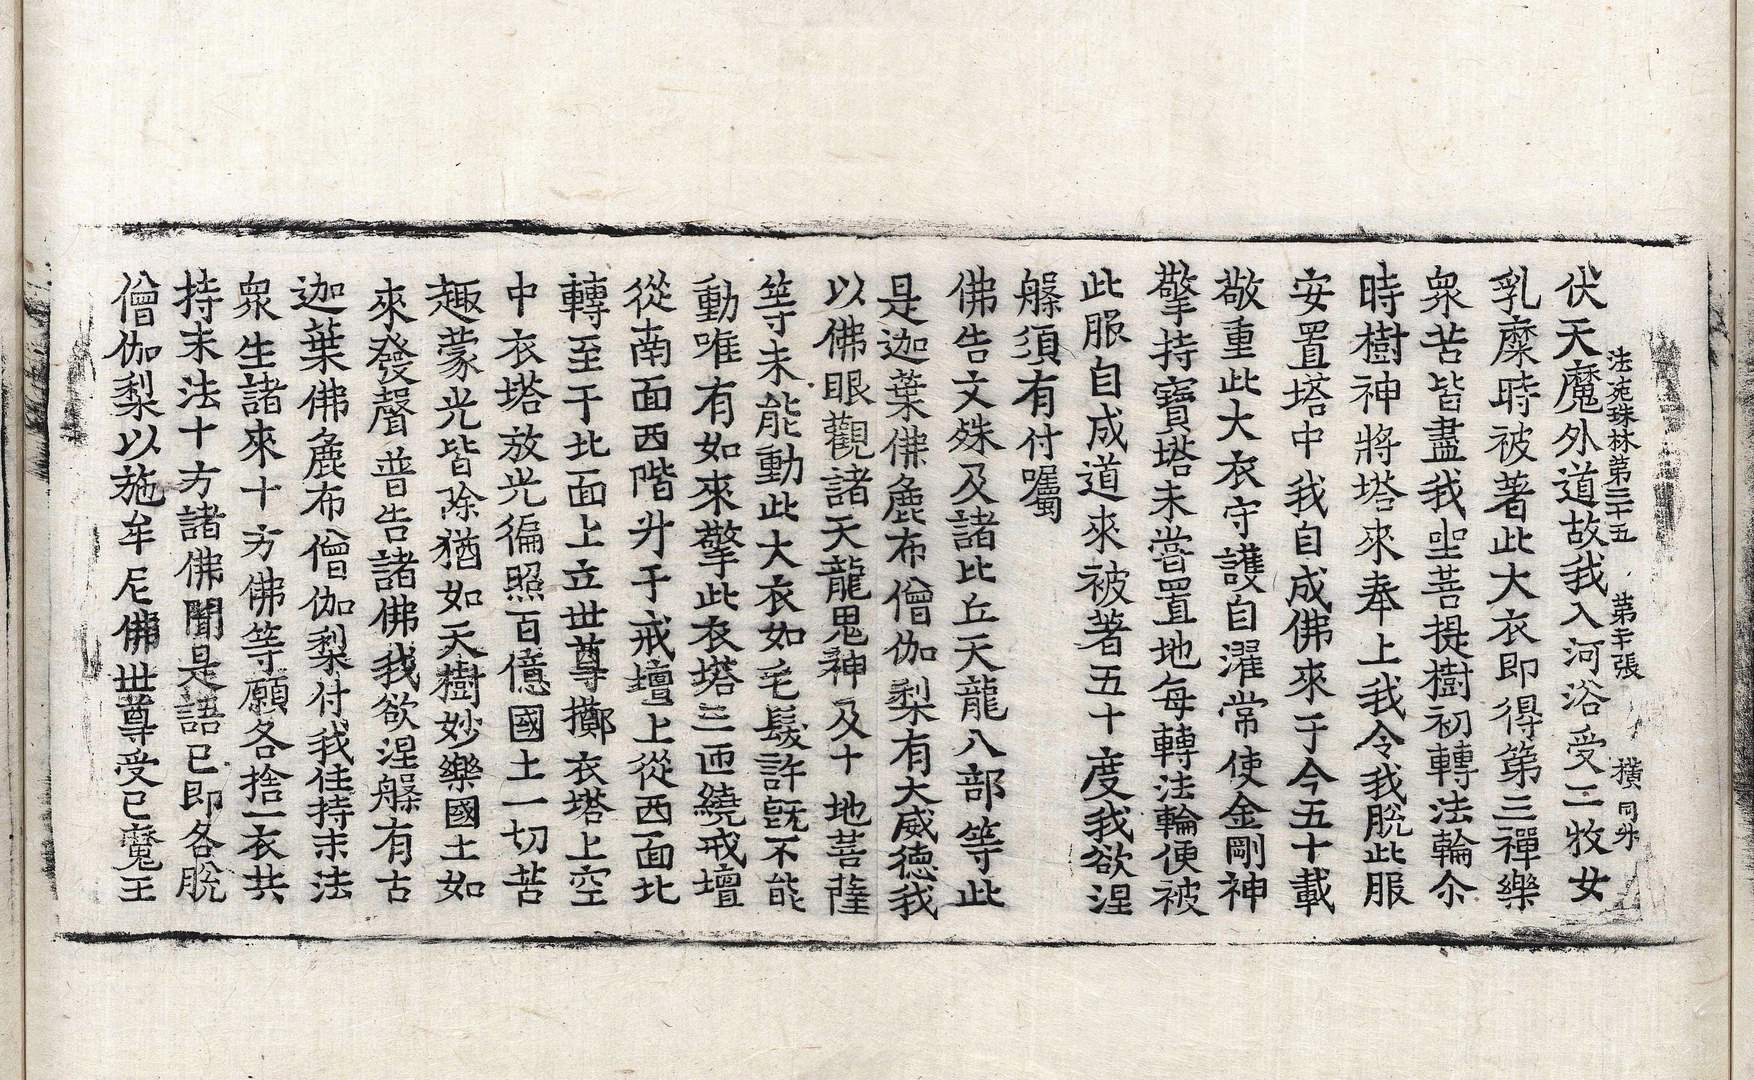 法苑珠林第三十五　第二十張　橫　同升
伏天魔外道故我入河浴受二牧女
乳糜時被著此大衣即得第三禪樂
衆苦皆盡我坐菩提樹初轉法輪尒
時樹神將塔來奉上我令我脫此服
安置塔中我自成佛來于今五十載
敬重此大衣守護自濯常使金剛神
擎持寶塔未嘗置地每轉法輪便被
此服自成道來被著五十度我欲涅
槃須有付囑
佛告文殊及諸比丘天龍八部等此
是迦葉佛麁布僧伽梨有大威德我
以佛眼觀諸天龍鬼神及十地菩薩
等未能動此大衣如毛髮許旣不能
動唯有如來擎此衣塔三匝繞戒壇
從南面西階升于戒壇上從西面北
轉至于北面上立世尊擲衣塔上空
中衣塔放光徧照百億國土一切苦
趣蒙光皆除猶如天樹妙樂國土如
來發聲普告諸佛我欲涅槃有古
迦葉佛麁布僧伽梨付我住持末法
衆生諸來十方佛等願各捨一衣共
持末法十方諸佛聞是語已即各脫
僧伽梨以施牟尼佛世尊受已魔王